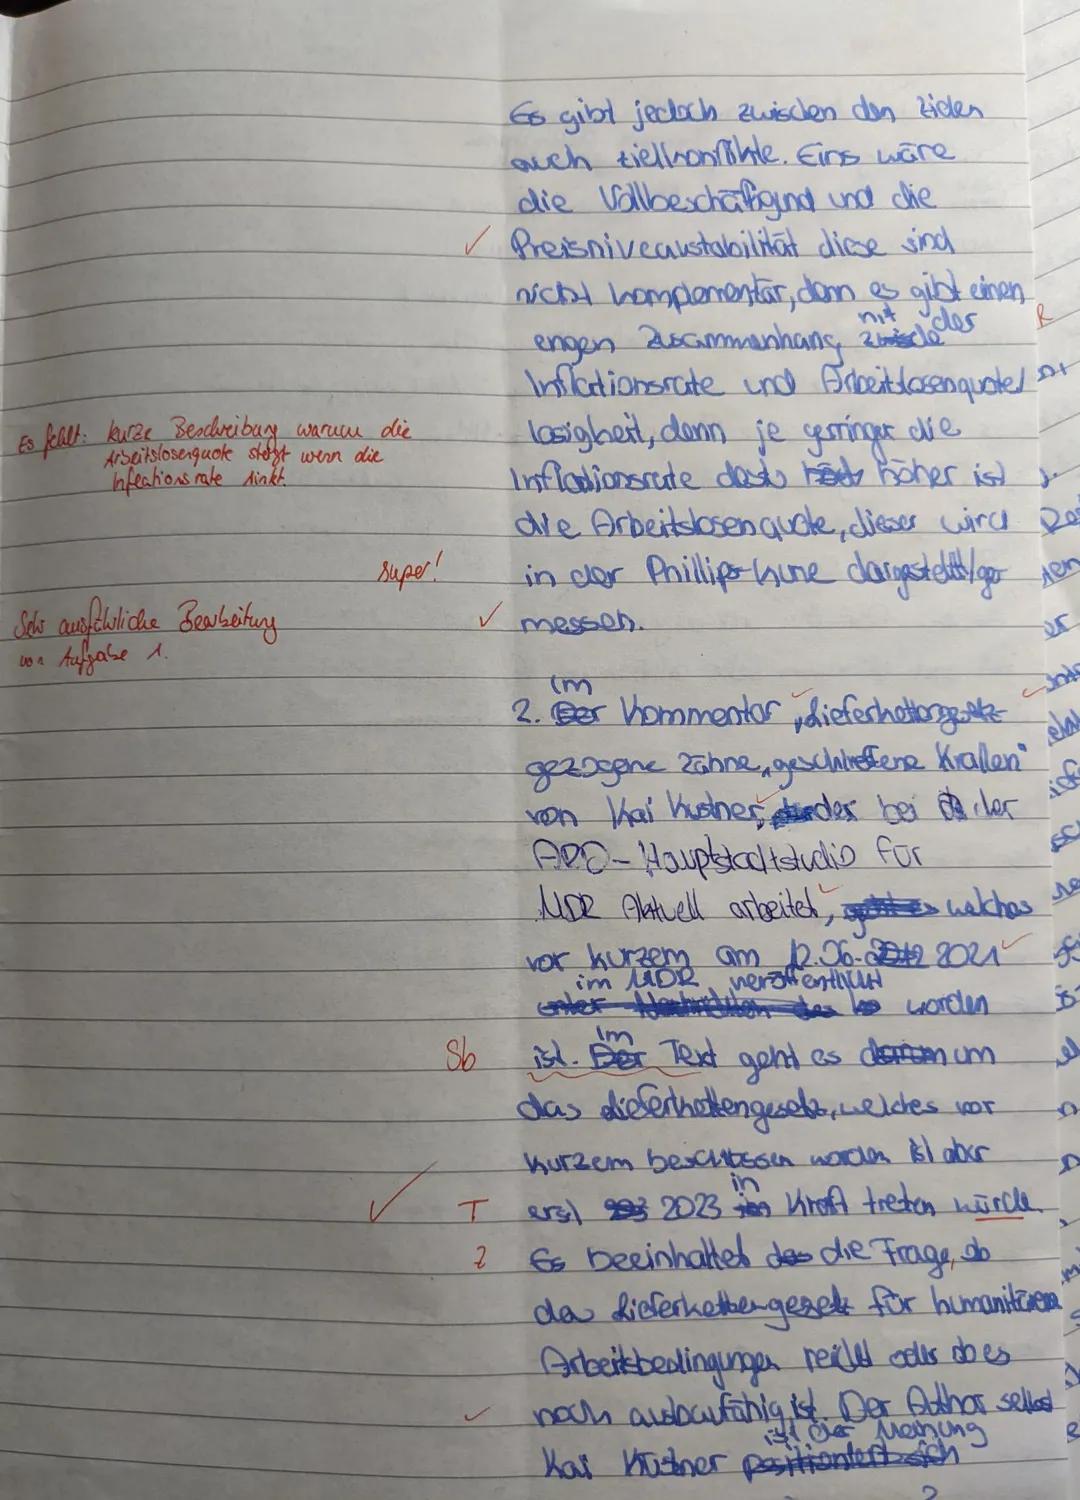 Es gibt jedoch zwischen den Zielen
auch Zielkonflikte. Eins wäre
die Vollbeschäfigund und die
✓ Preisniveaustabilität diese sind
nicht komplementär, denn es gibt einen
engen Zusammenhang mit der R
Inflationsrate und Arbeitslosenquote/
Es fehlt: kurze Beschreibung warum die
Arbeitslosenquote steigt wenn die
Inflationsrate sinkt.
losigkeit, denn je gerringer die
Inflationsrate desto höher ist
die Arbeitslosenquote, dieser wird
super!
in der Phillips-kurve dargestellt/ge
Sehr ausführliche Bearbeitung
von Aufgabe 1.
✓ messen.
2. Im Kommentar „Lieferkettengesetz
gezogene Zähne, geschliffene Krallen"
von Kai Küstner, der bei der
ARD-Hauptstadtstudio für
MDR Aktuell arbeitet, welches
vor kurzem am 12.06. 2021
im MDR veröffentlicht
worden
Sb ist. im Text geht es um
das Lieferkettengesetz, welches vor
kurzem beschlossen worden ist aber
✓ T erst 2023 in Kraft treten würde.
Z Es beeinhaltet die Frage, ob
das Lieferkettengesetz für humanitären
Arbeitsbedingungen reicht oder ob es
✓ noch ausbaufähig ist. Der Author selbst
Kai Küstner ist der Meinung